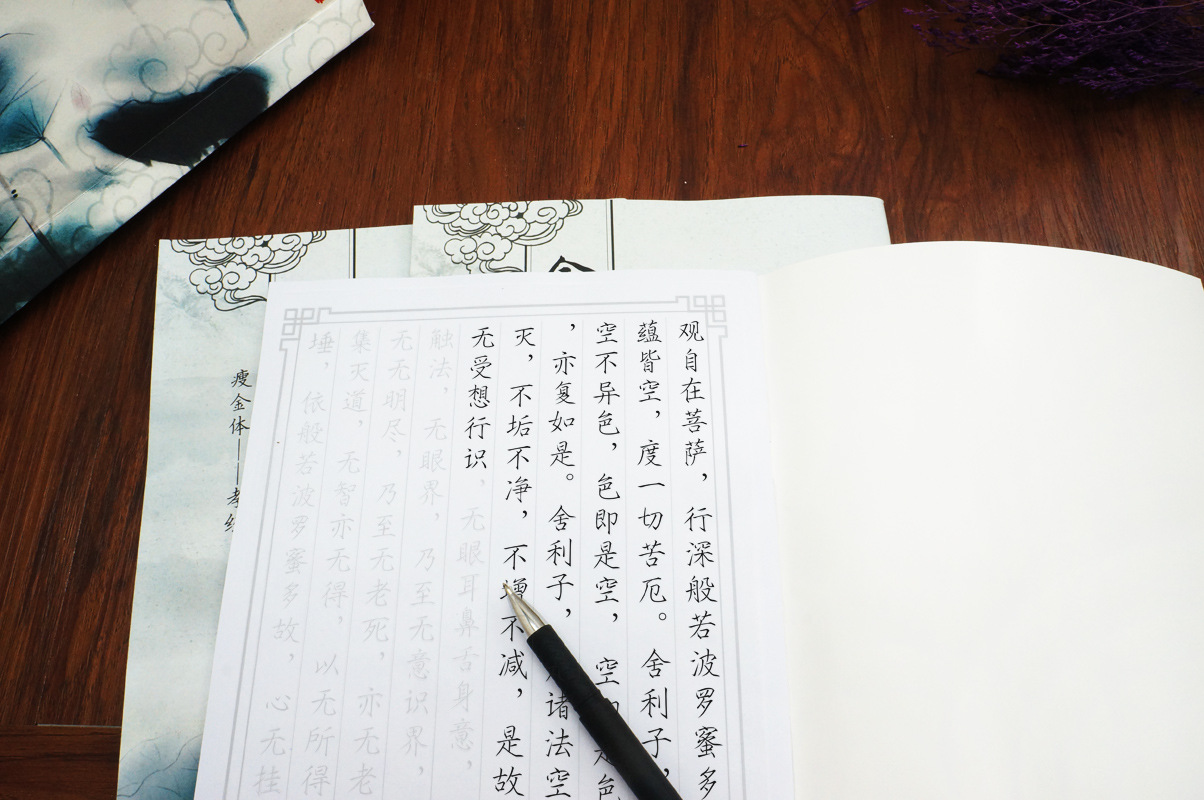 观自在菩萨，行深般若波罗蜜多
蕴皆空，度一切苦厄。舍利子，
空不异色，色即是空，空是色
，亦复如是。舍利子，诸法空
灭，不垢不净，不增不减，是故
无受想行识，无眼耳鼻舌身意，
触法，无眼界，乃至无意识界，
无无明尽，乃至无老死，亦无老
集灭道，无智亦无得，以无所得
埵，依般若波罗蜜多故，心无挂
瘦金体——孝经